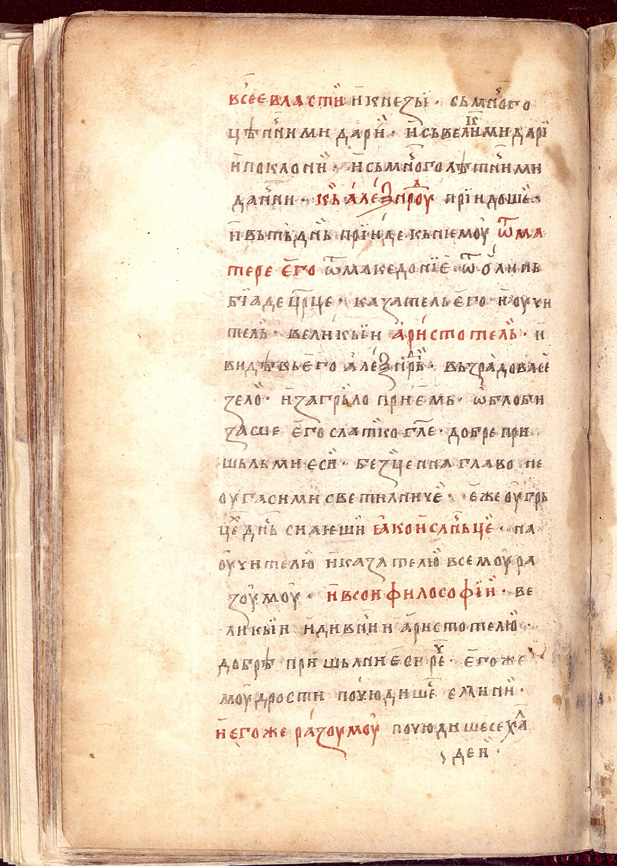 всее власти и кнезы · съмного
цѣнними дари · и съвелиими дари
и поклони · и съмноголѣтними
данми · къ алеѯандроу приидоше ·
и вьтьднь прииде кьнѥмоу ѿ ма
тере его ѿ македоние · ѿ олимь
биаде црце · казатель его · и оучи
тель · великыи аристотель · и
видѣвь его алеѯандрь · възрадовасе
зело · и загрьло приемь · ѡблоби
засше его слатко гле · добре при
шьльми еси · безценна главо не
оугасими светилниче · еже оу грь
це днь сиаюши ꙗко и слньце · па
оучителю и казателю всемоу ра
зоумоу · и всои философии · ве
ликыи и дивнии аристотелю ·
добрѣ пришьлми еси рч · егоже
моудрости почюдише елини ·
и егоже разоумоу почюдишесе хал
деи